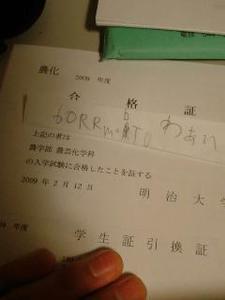 農化 2009 年度
合 格 証
上記の者は
農学部 農芸化学科
の入学試験に合格したことを証する
2009 年 2 月 12 日 明 治 大
年度
学 生 証 引 換 証